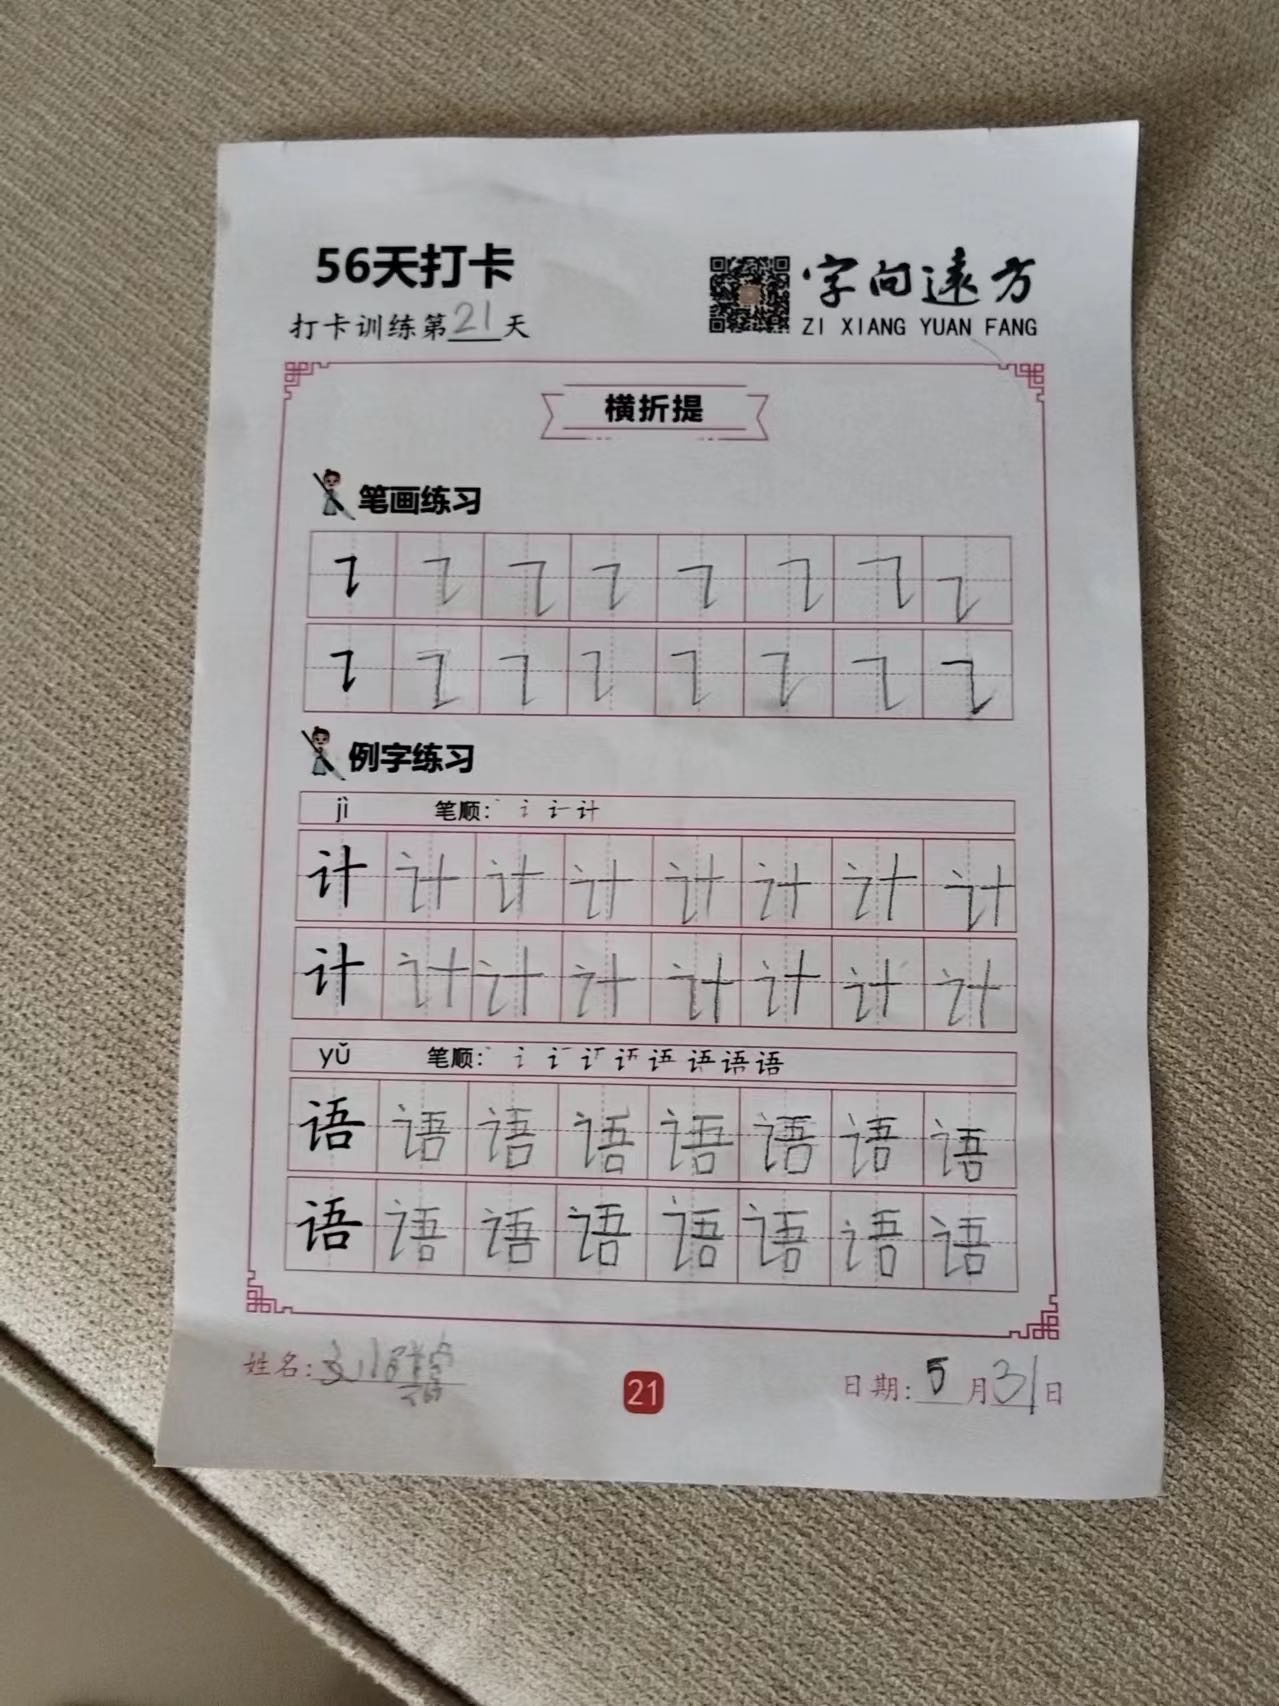 56天打卡
打卡训练第21天
字向远方
ZI XIANG YUAN FANG
横折提
笔画练习
㇊ ㇊ ㇊ ㇊ ㇊ ㇊ ㇊ ㇊
㇊ ㇊ ㇊ ㇊ ㇊ ㇊ ㇊ ㇊
例字练习
jì 笔顺: 计
计 计 计 计 计 计 计 计
计 计 计 计 计 计 计 计
yǔ 笔顺: 语 语 语
语 语 语 语 语 语 语 语
语 语 语 语 语 语 语 语
姓名:
21
日期: 5月31日